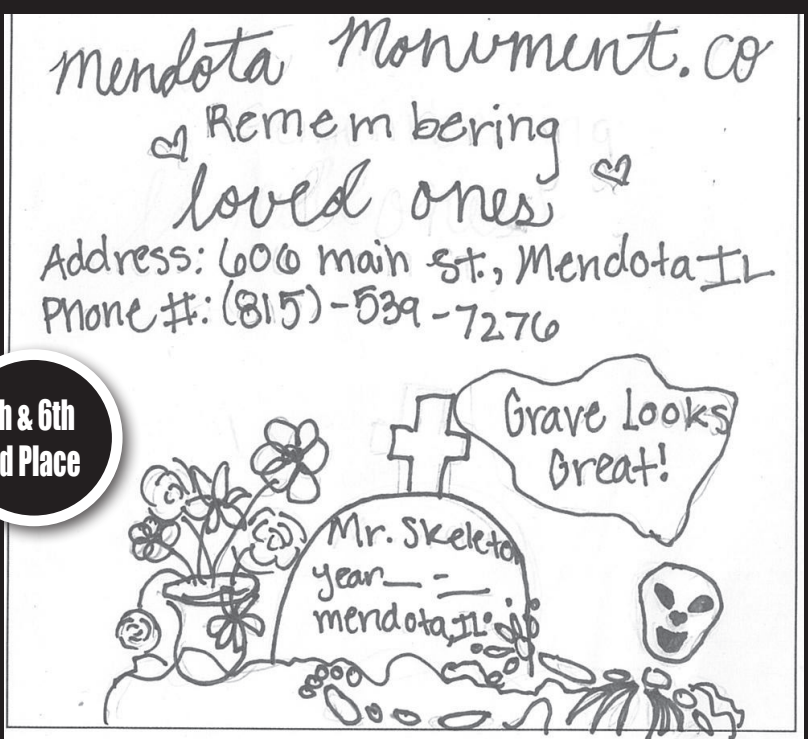 Mendota Monument.co
Remembering
loved ones
Address: 606 main St., Mendota IL
Phone #: (815)-539-7276
h & 6th
d Place
Grave Looks
Great!
Mr. Skeleton
year__-__
mendota, IL